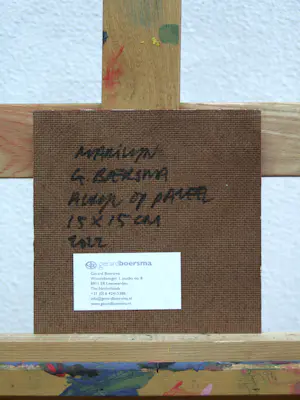 MARILYN
G. BOERSMA
ACRYL OP PANEEL
15 X 15 CM
2022
gerardboersma
Gerard Boersma
The Netherlands
info@gerardboersma.nl
www.gerardboersma.nl